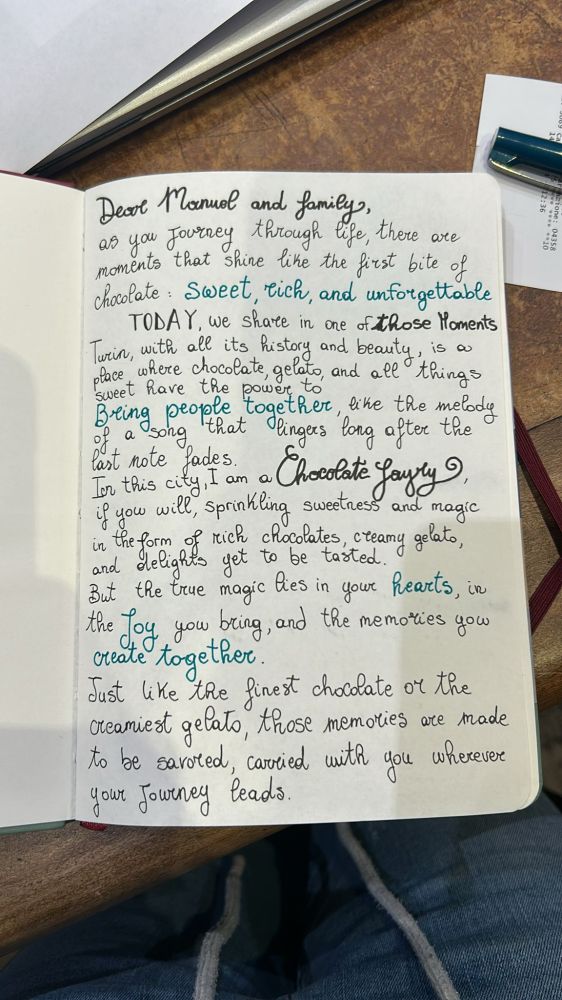 Dear Manuel and family,
as you Journey through life, there are
moments that shine like the first bite of
chocolate: Sweet, rich, and unforgettable
TODAY, we share in one of those Moments
Turin, with all its history and beauty, is a
place where chocolate, gelato, and all things
sweet have the power to
Bring people together, like the melody
of a song that lingers long after the
last note fades.
In this city, I am a Chocolate
if you will, sprinkling sweetness and magic
in the form of rich chocolates, creamy gelato,
and delights yet to be tasted.
But the true magic lies in your hearts, in
the Joy you bring, and the memories you
create together.
Just like the finest chocolate or the
creamiest gelato, those memories are made
to be savored, carried with you wherever
your Journey leads.
04358
12:36